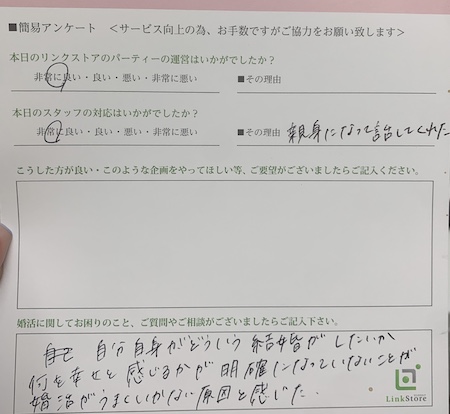 ■簡易アンケート ＜サービス向上の為、お手数ですがご協力をお願い致します＞
本日のリンクストアのパーティーの運営はいかがでしたか？
非常に良い・良い・悪い・非常に悪い ■その理由
本日のスタッフの対応はいかがでしたか？
非常に良い・良い・悪い・非常に悪い ■その理由 親身になって話してくれた
こうした方が良い・このような企画をやってほしい等、ご要望がございましたらご記入ください。
婚活に関してお困りのこと、ご質問やご相談がございましたらご記入下さい。
自分自身がどういう結婚がしたいか
何を幸せと感じるかが明確になっていないことが
婚活がうまくいかない原因と感じた.
LinkStore